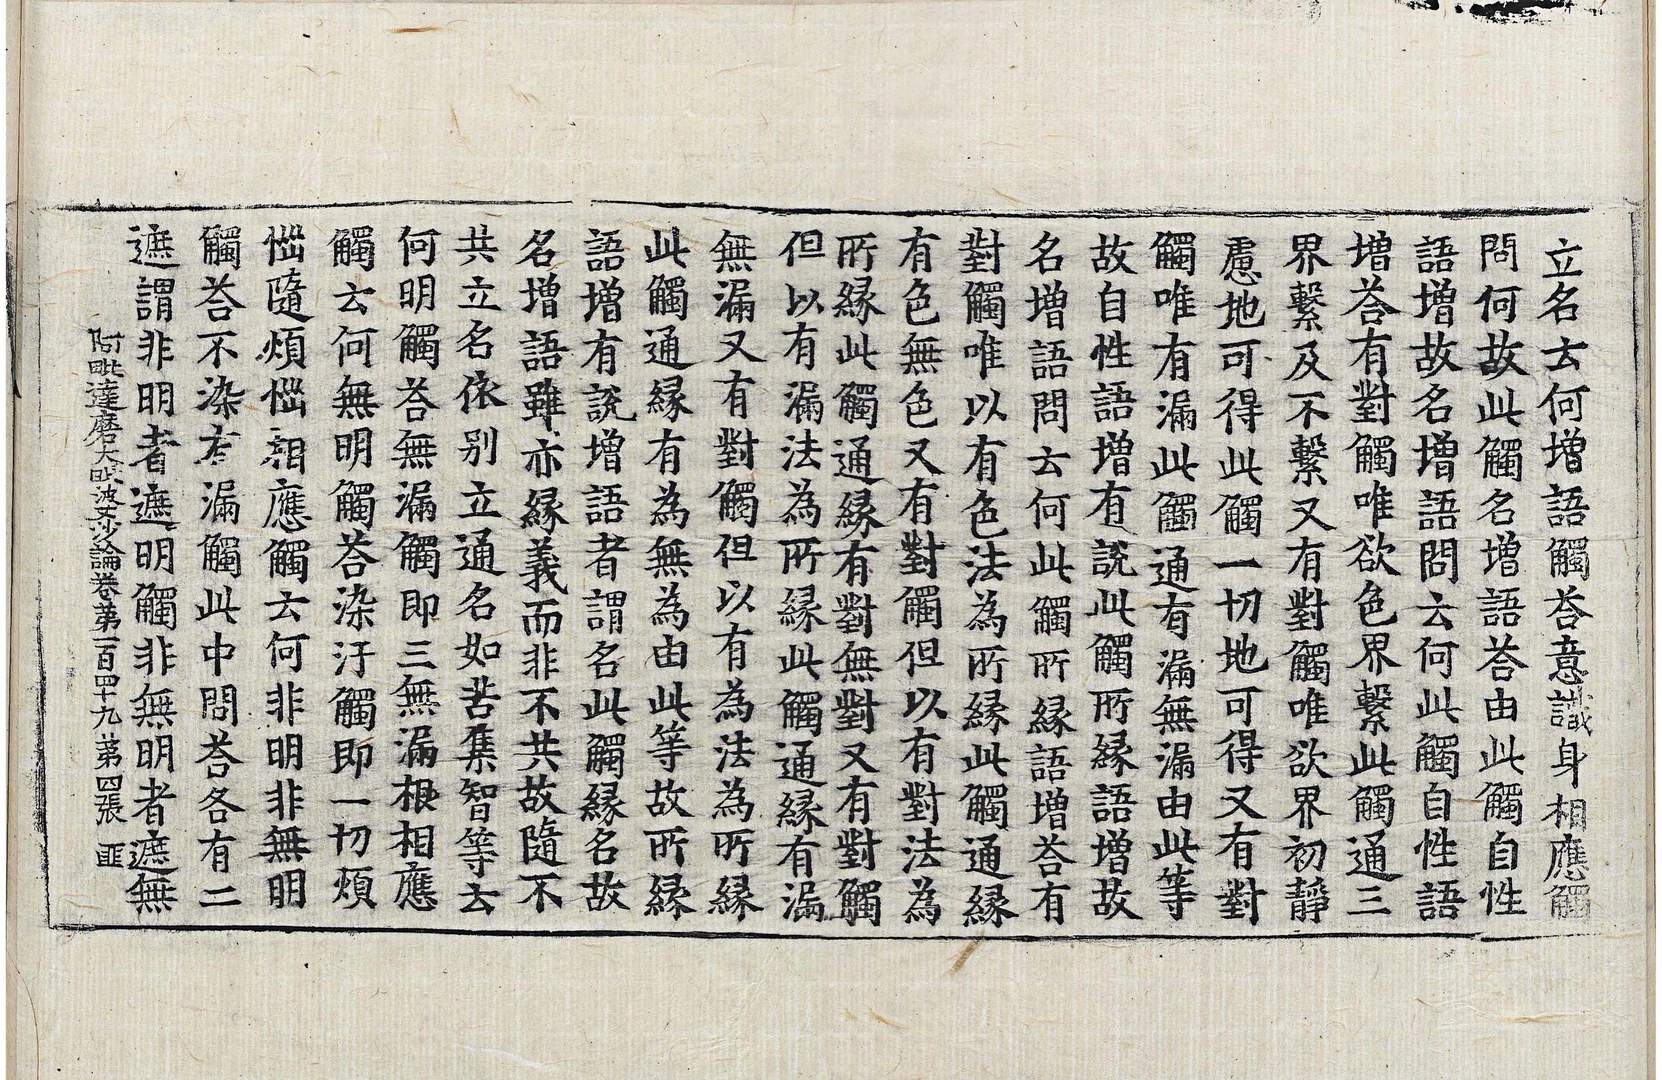 立名去何增語觸荅意識身相應觸
問何故此觸名增語荅由此觸自性
語增故名增語問去何此觸自性語
增荅有對觸唯欲色界繫此觸通三
界繫及不繫又有對觸唯欲界初靜
慮地可得此觸一切地可得又有對
觸唯有漏此觸通有漏無漏由此等
故自性語增有說此觸所緣語增故
名增語問去何此觸所緣語增荅有
對觸唯以有色法為所緣此觸通緣
有色無色又有對觸但以有對法為
所緣此觸通緣有對無對又有對觸
但以有漏法為所緣此觸通緣有漏
無漏又有對觸但以有為法為所緣
此觸通緣有為無為由此等故所緣
語增有說增語者謂名此觸緣名故
名增語雖亦緣義而非不共故隨不
共立名依別立通名如苦集智等去
何明觸荅無漏觸即三無漏根相應
觸去何無明觸荅染汙觸即一切煩
惱隨煩惱相應觸去何非明非無明
觸荅不染有漏觸此中問荅各有二
遮謂非明者遮明觸非無明者遮無
阿毗達磨大毗婆沙論卷第一百四十九 第四張 匪